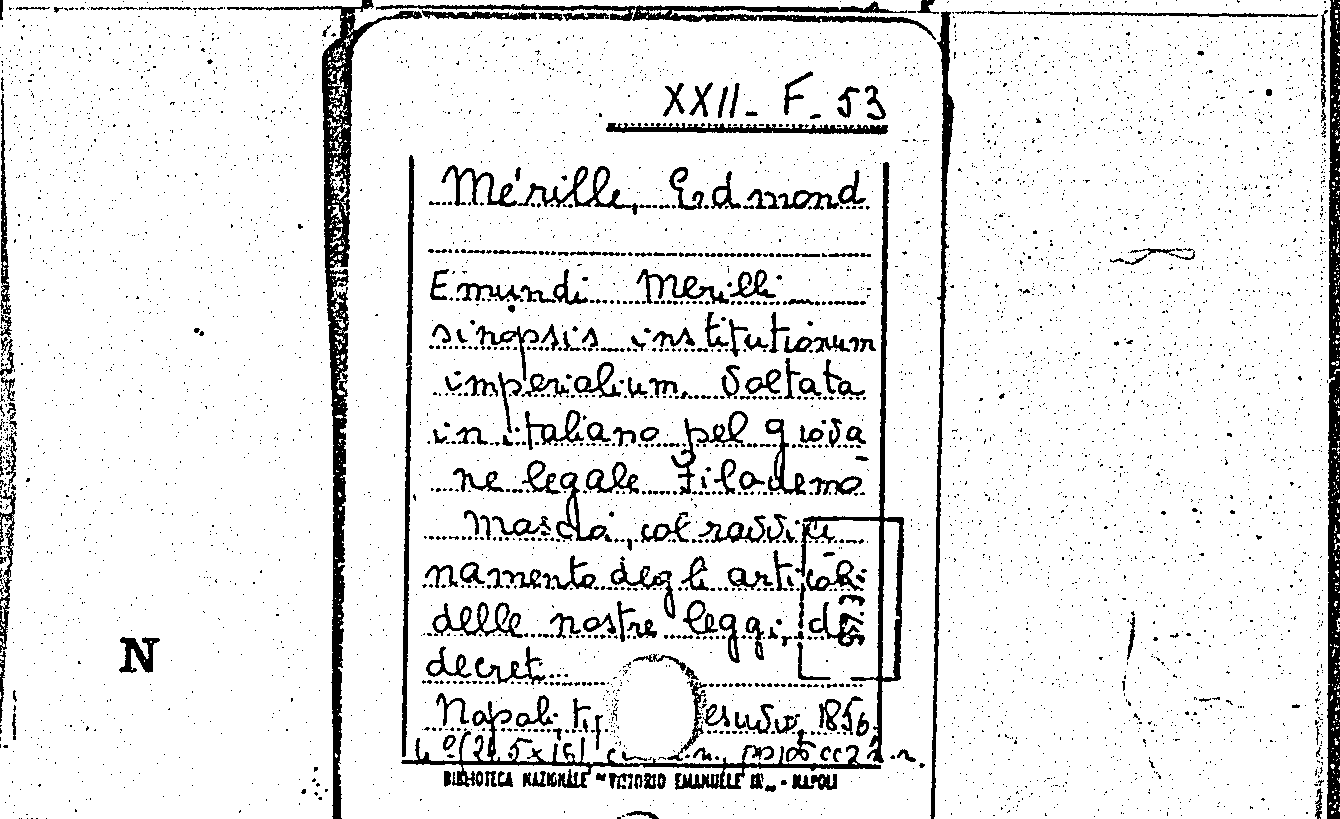 XXII - F - 53
Mérille, Edmond
Emundi Merilli
sinopsis institutionum
imperialium. Voltata
in italiano pel giova
ne legale Filademo
Mascia, col ravvici
namento degli articoli
delle nostre leggi, de
decret...
Napoli, tip esuvio, 1856
4° pp 105 cc 2 n.n.
57.37
BIBLIOTECA NAZIONALE "VITTORIO EMANUELE III" - NAPOLI
N